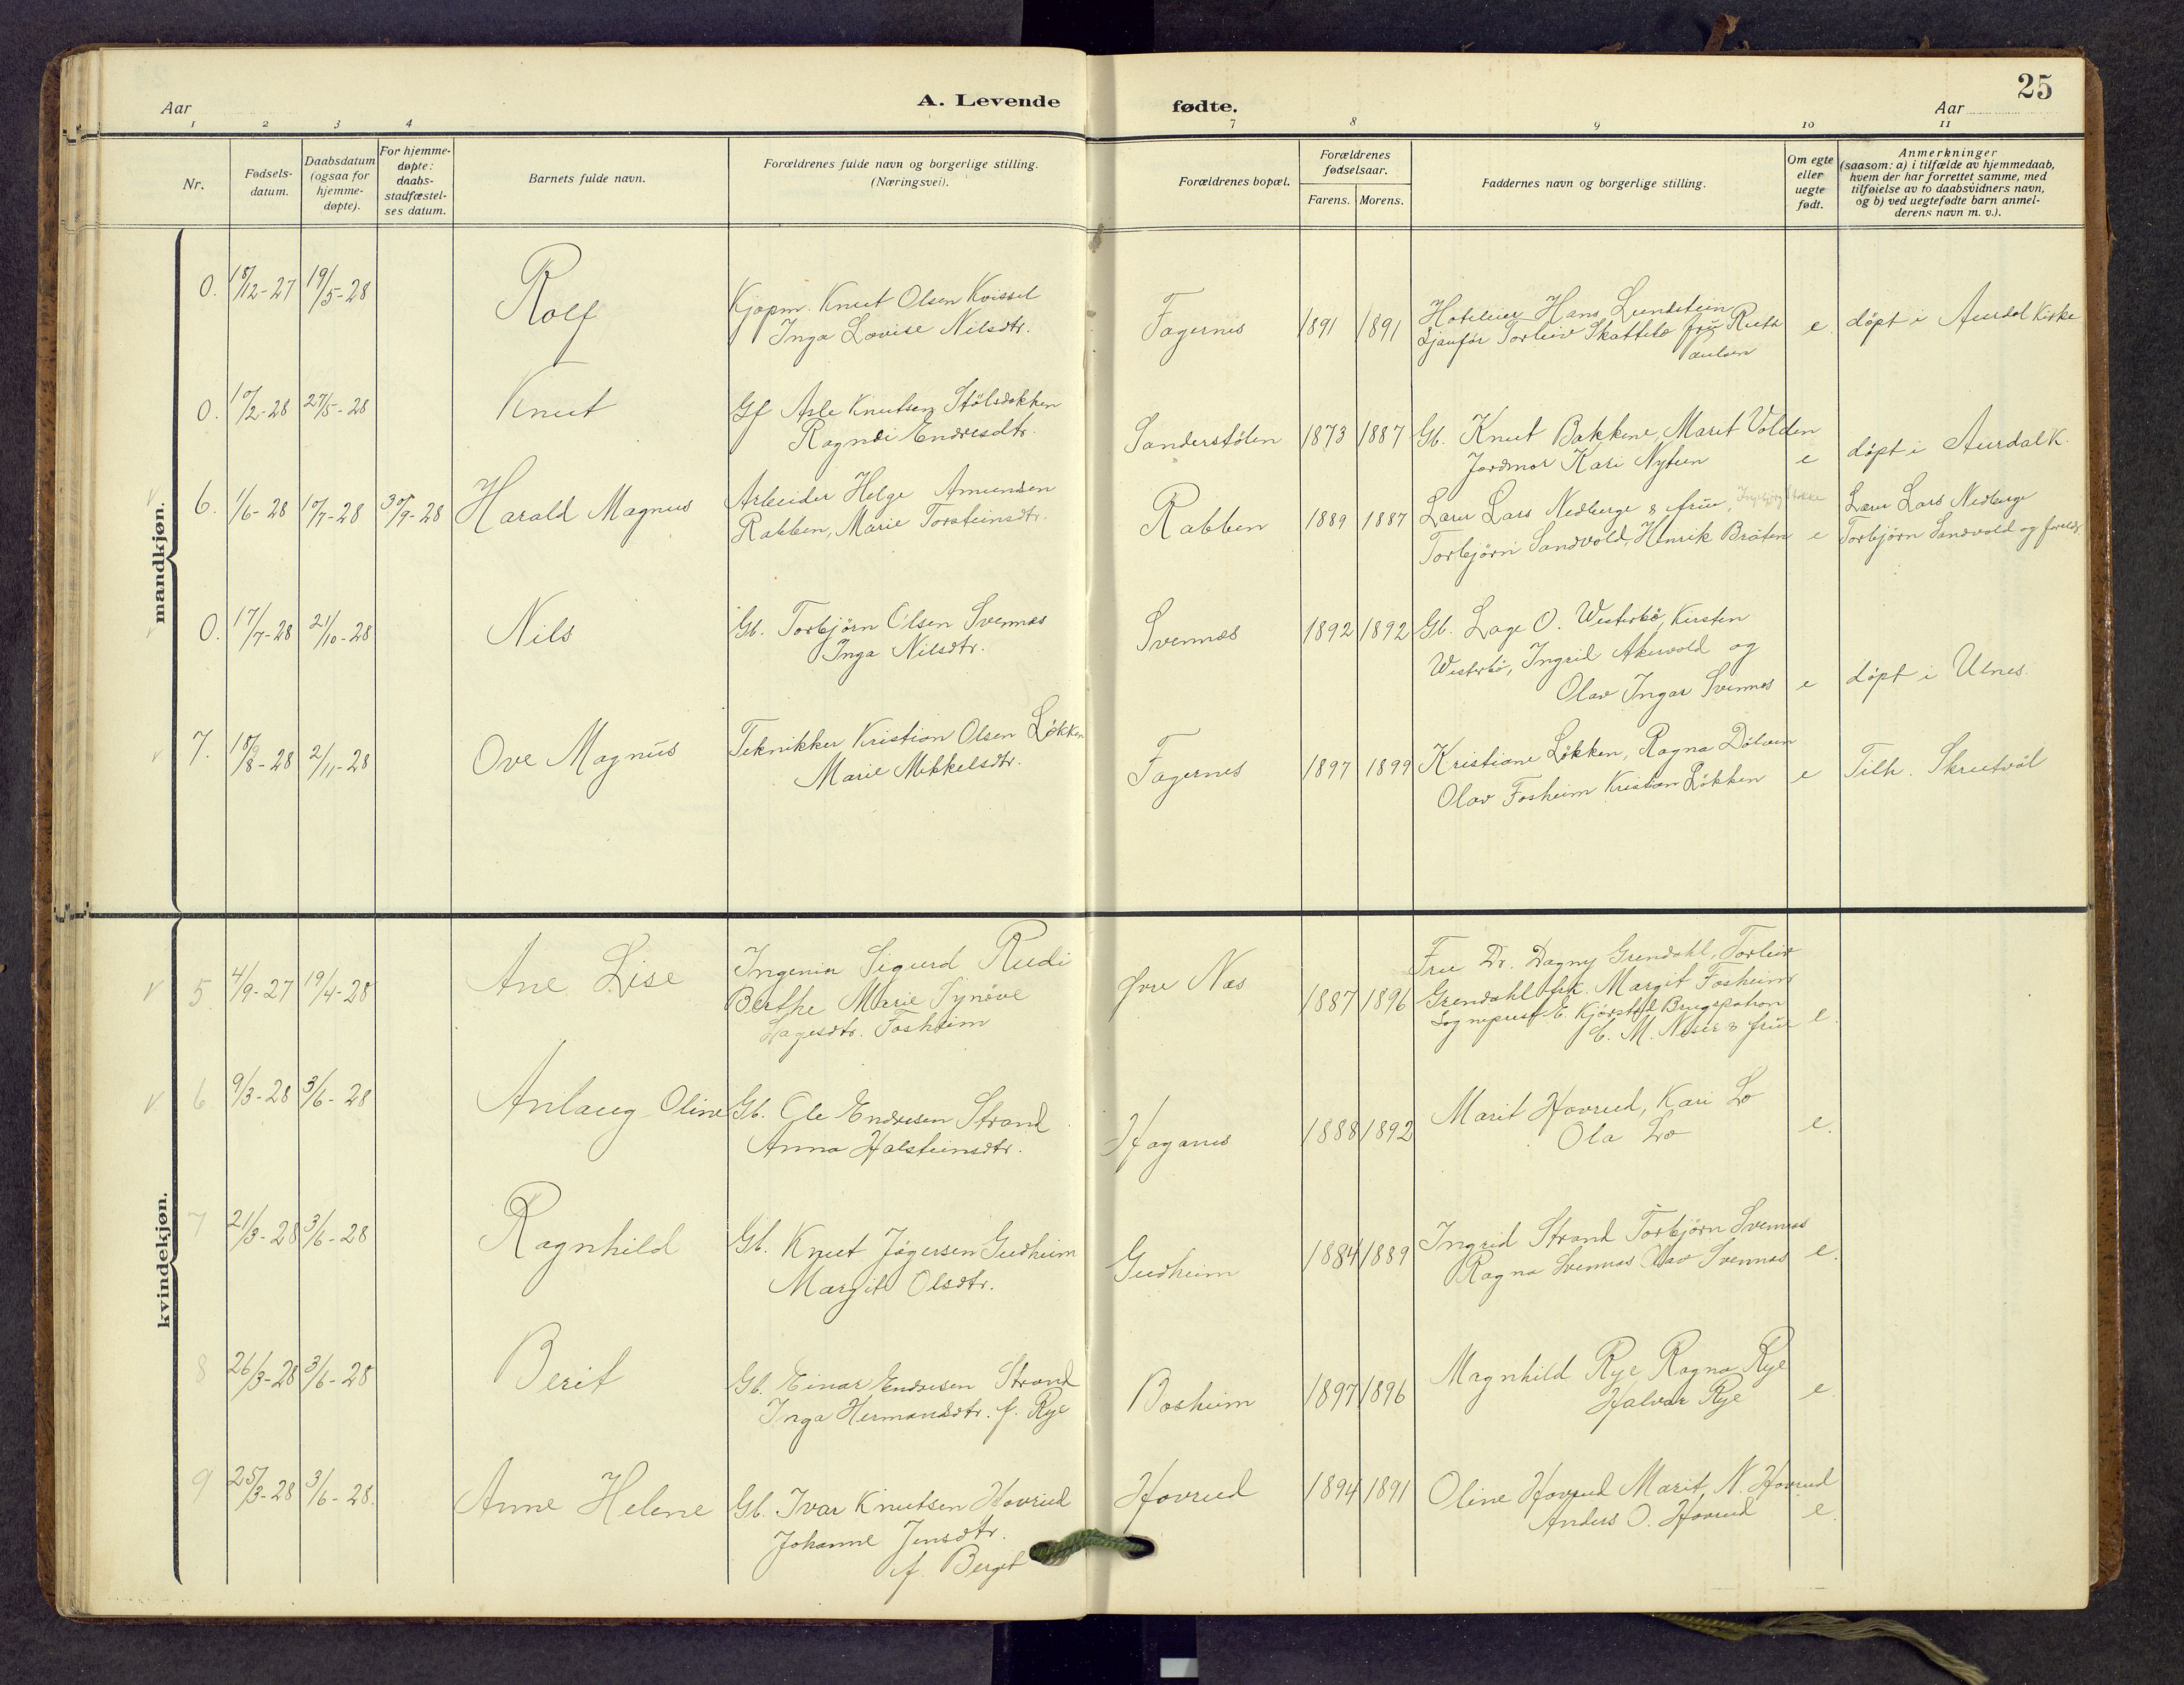 25
Aar
A. Levende
fødte.
Aar
1 2 3 4 7 8 9 10 11
Nr.
Fødsels-
datum.
Daabsdatum
(ogsaa for
hjemme-
døpte).
For hjemme-
døpte:
daabs-
stadfæstel-
ses datum.
Barnets fulde navn.
Forældrenes fulde navn og borgerlige stilling.
(Næringsvei).
Forældrenes bopæl.
Forældrenes
fødselsaar.
Farens. Morens.
Faddernes navn og borgerlige stilling.
Om egte
eller
uegte
født.
Anmerkninger
(saasom: a) i tilfælde av hjemmedaab,
hvem der har forrettet samme, med
tilføielse av to daabsvidners navn,
og b) ved uegtefødte barn anmel-
derens navn m. v.).
mandkjøn.
0. 18/12-27 19/5-28
Rolf
Kjøpm. Knut Olsen Kvissel
Inga Lovise Nilsdtr.
Fagernes
1891 1891
Hotelier Hans Lundstein
Sjauför Torleiv Skattebo fru Ruth
Paulsen
e.
döpt i Aurdal Kirke
0. 10/2-28 27/5-28
Knut
Gf Asle Knutsen Stölsdokken
Ragndi Endresdtr.
Sanderstölen
1873 1887
Gb. Knut Bakkene, Marit Volden
Jordmor Kari Nytun
e
döpt i Aurdal K.
6. 1/6-28 10/7-28 30/9-28
Harald Magnus
Arbeider Helge Amundsen
Rabben, Marie Torsteinsdtr.
Rabben
1889 1887
Lærer Lars Nedberge & frue,
Torbjörn Sandvold, Henrik Bråten
e
Lærer Lars Nedberge
Torbjörn Sandvold og foreldr.
0. 17/7-28 21/10-28
Nils
Gb. Torbjörn Olsen Svennes
Inga Nilsdtr.
Svennes
1892 1892
Gb. Lage O. Westerbö, Kirsten
Westerbö, Ingrid Akervold og
Olav Ingar Svennes
e
döpt i Ulnes.
7. 18/8-28 2/11-28
Ove Magnus
Teknikker Kristian Olsen Lökken
Marie Mikkelsdtr.
Fagernes
1897 1899
Kristiane Lökken, Ragna Dölven
Olav Fosheim Kristian Lökken
e
Tilh. Skrutvål
kvindekjøn.
5. 4/9-27 19/4-28
Ane Lise
Ingeniør Sigurd Rudi
Berthe Marie Synöve
Lagesdtr. Fosheim
Øvre Næs
1887 1896
Fru Dr. Dagny Grendahl, Torleiv
Grendahl frk. Margit Fosheim
Sogneprest E. Kjörstad Brugspatron
C. M. Neser & frue
e.
6 9/3-28 3/6-28
Anlaug Oline
Gb. Ole Endresen Strand
Anna Halsteinsdtr.
Haganes
1888 1892
Marit Hovrud, Kari Lo
Ola Lo
e.
7 21/3-28 3/6-28
Ragnhild
Gb. Knut Jögersen Gudheim
Margit Olsdtr.
Gudheim
1884 1889
Ingrid Strand Torbjörn Svennes
Ragna Svennes Olav Svennes
e.
8 26/3-28 3/6-28
Berit
Gb. Einar Endresen Strand
Inga Hermansdtr. f. Rye
Bosheim
1897 1896
Magnhild Rye Ragna Rye
Halvar Rye
e.
9 25/3-28 3/6-28.
Anne Helene
Gb. Ivar Knutsen Hovrud
Johanne Jensdtr.
f. Berget
Hovrud
1894 1891
Oline Hovrud Marit N. Hovrud
Anders O. Hovrud
e.